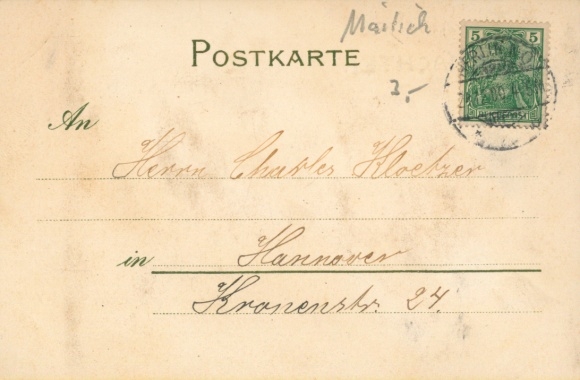 Mailich
POSTKARTE
3,-
5 5
BERLIN
An
Herrn Charles Kloetzer
in Hannover
Kronenstr. 24.